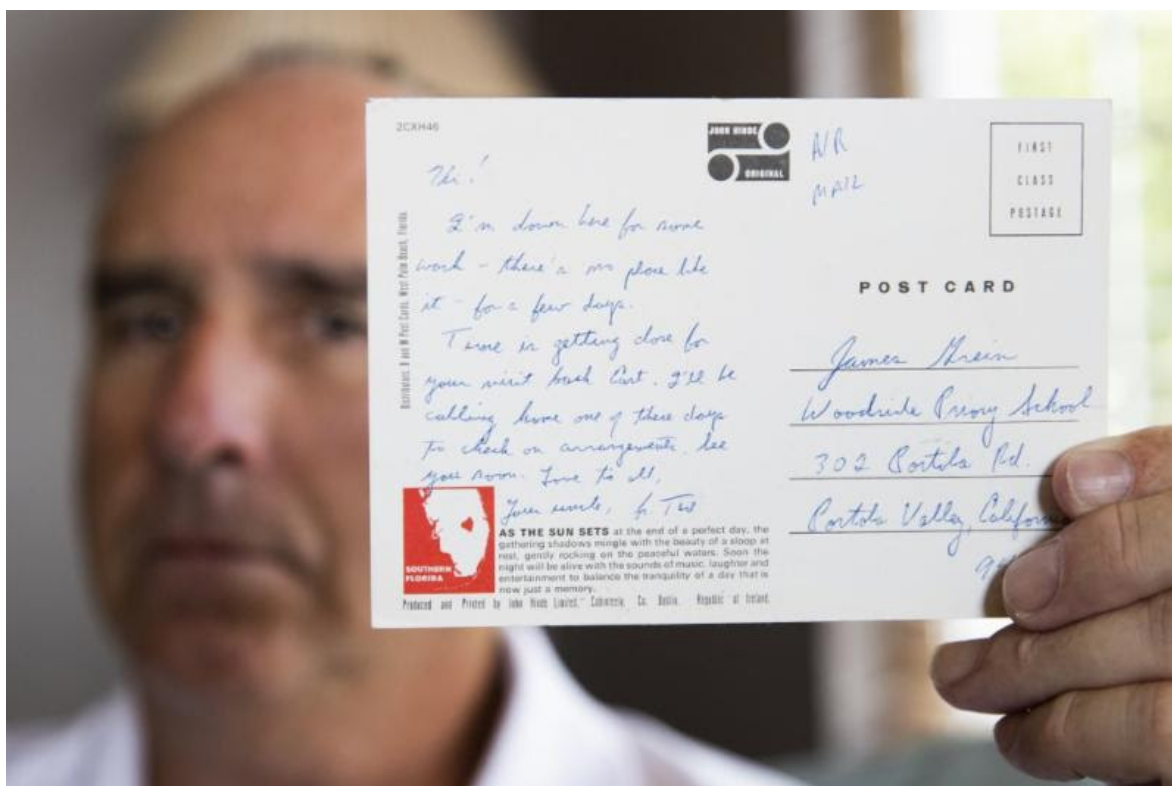 2CXH46
JOHN HINDE
ORIGINAL
AIR
MAIL
FIRST
CLASS
POSTAGE
Hi!
I'm down here for some
work - there's no place like
it - for a few days.
Time is getting close for
your visit back East. I'll be
calling home one of these days
to check on arrangements. See
you soon. Love to all,
Your uncle, Fr. Ted
POST CARD
James Grein
Woodside Priory School
302 Portola Rd.
Portola Valley, California
Distributors: B and M Post Cards, West Palm Beach, Florida.
SOUTHERN
FLORIDA
AS THE SUN SETS at the end of a perfect day, the
gathering shadows mingle with the beauty of a sloop at
rest, gently rocking on the peaceful waters. Soon the
night will be alive with the sounds of music, laughter and
entertainment to balance the tranquility of a day that is
now just a memory.
Produced and Printed by John Hinde Limited, Cabinteely, Co. Dublin, Republic of Ireland.